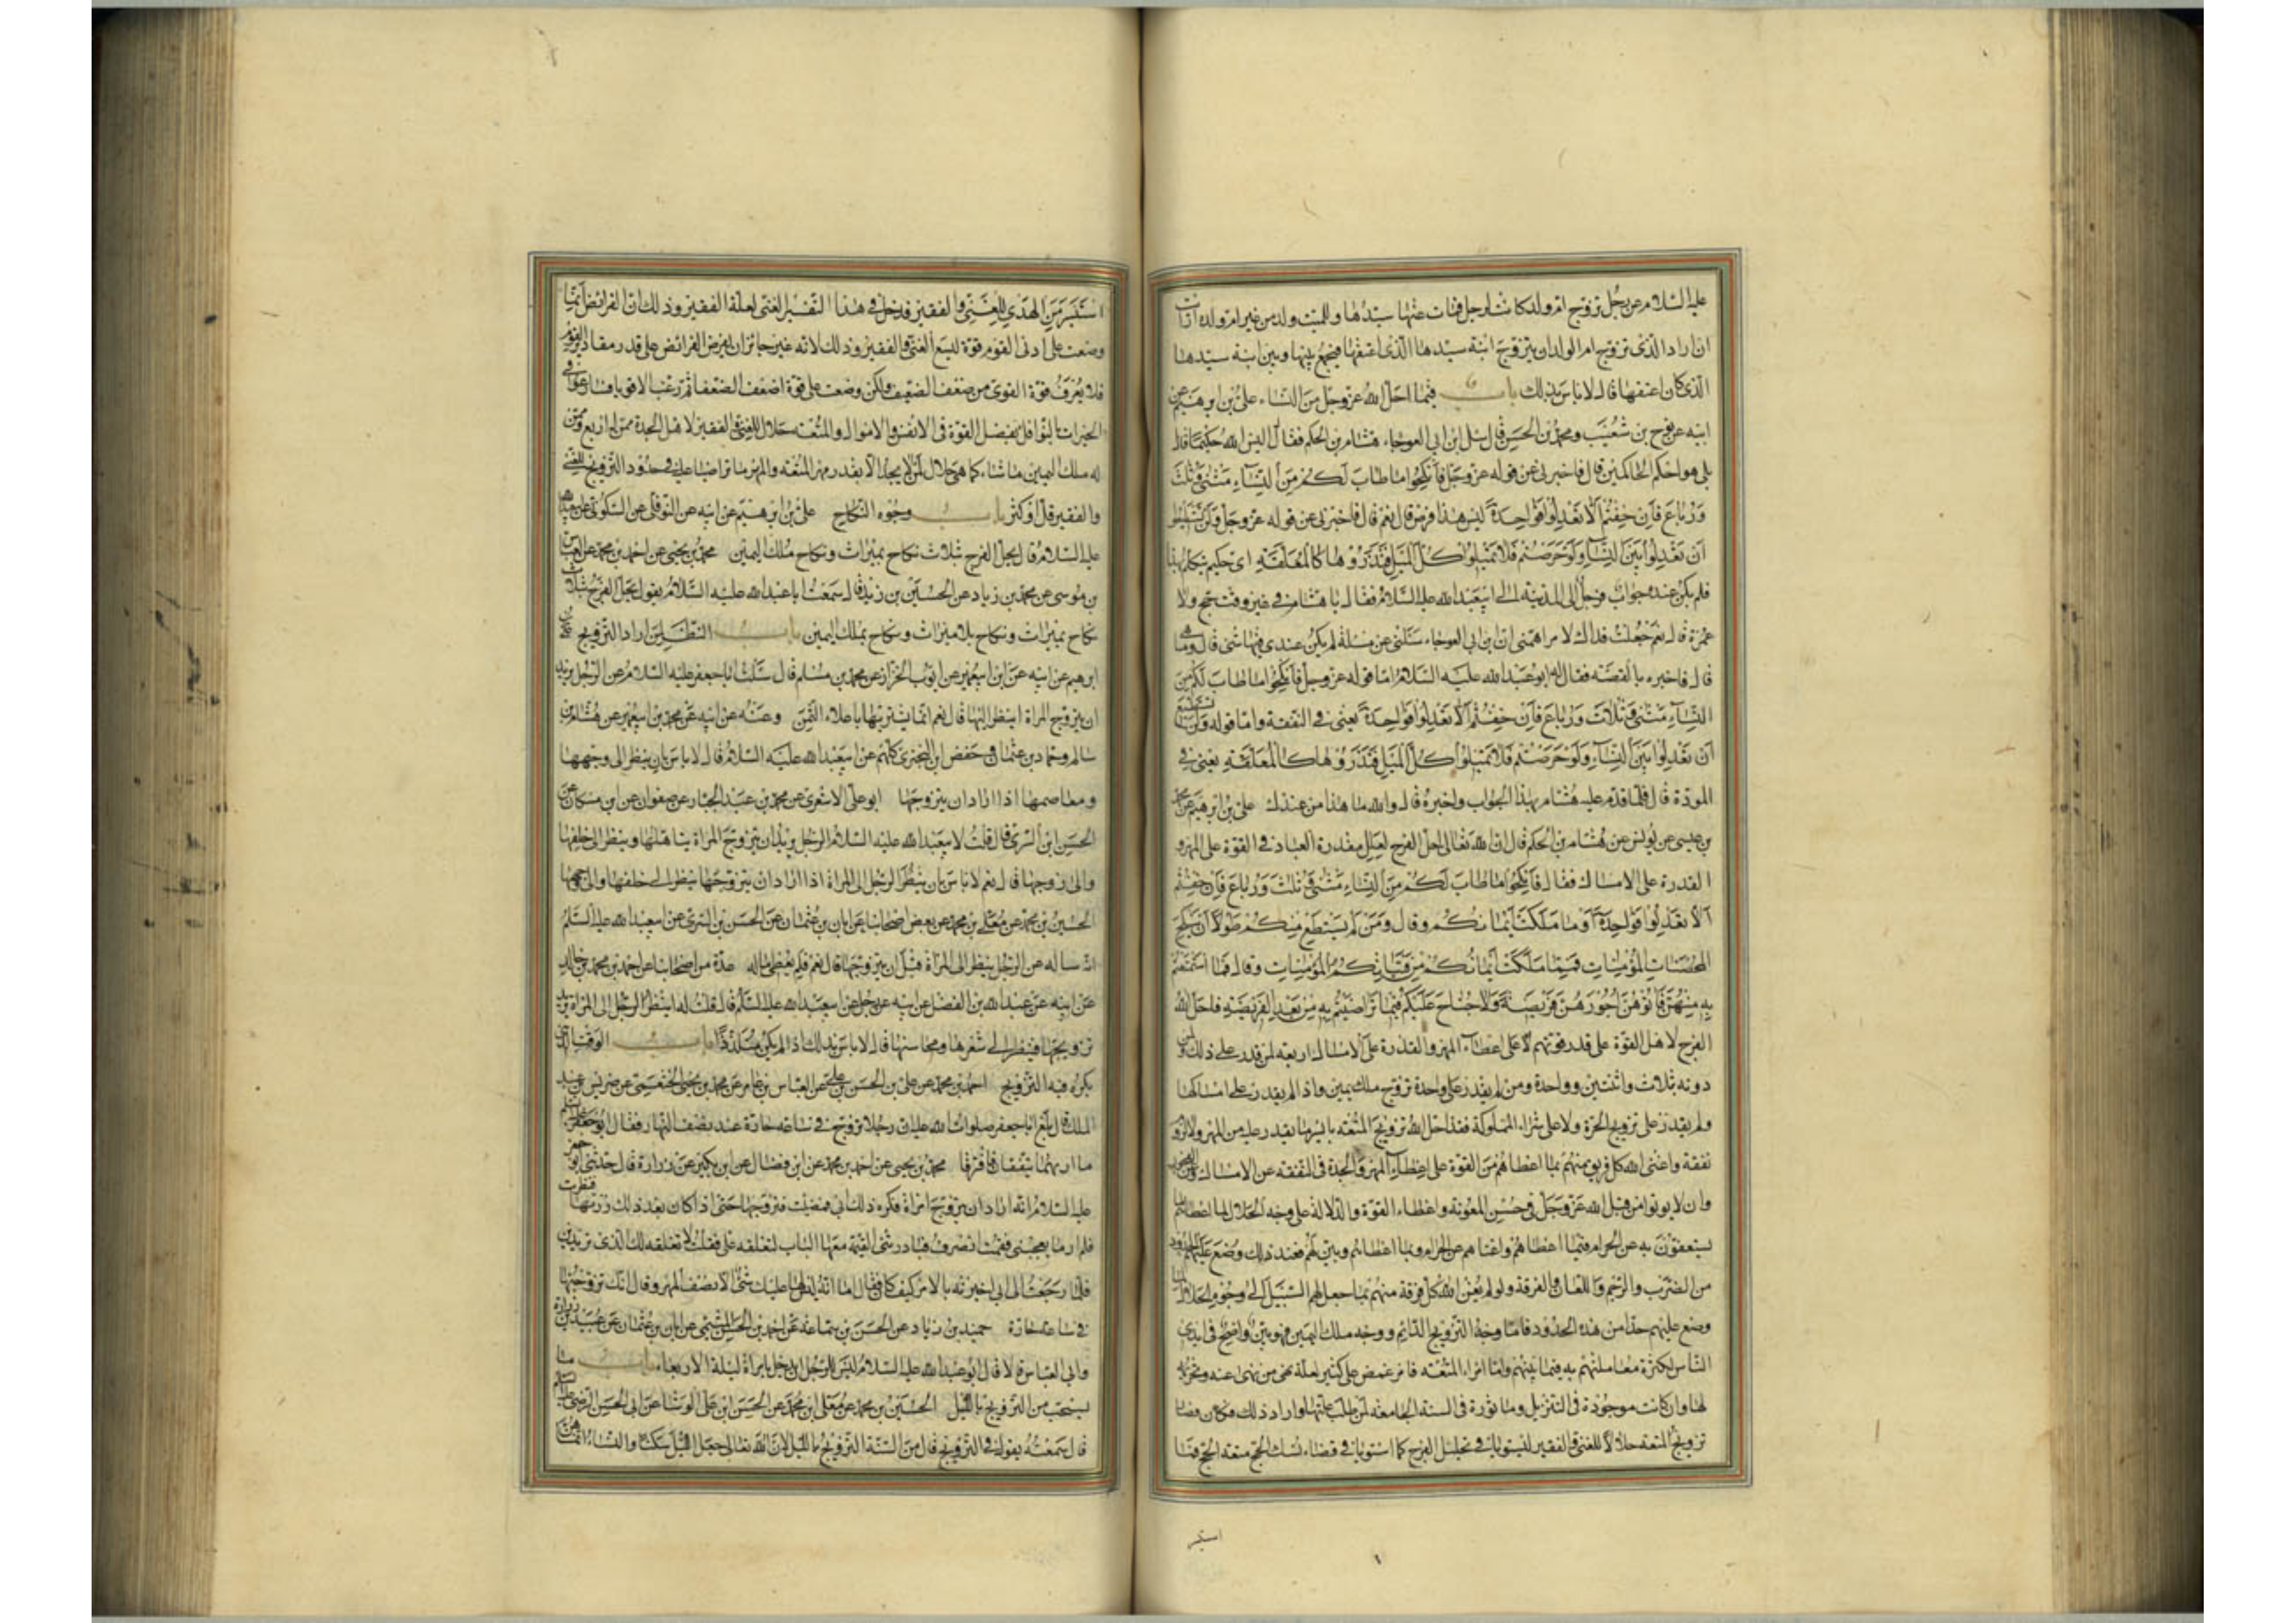 عليه السلام عن رجل تزوج ام ولد كانت لرجل فمات عنها سيدها وللميت ولد من غير ام ولده ارايت
ان اراد الذى تزوج ام الولد ان يتزوج ابنة سيدها الذى اعتقها فيجمع بينها وبين ابنة سيدها
الذى كان اعتقها قال لا باس بذلك باب فيما احل الله عز وجل من النساء على بن ابرهيم عن
ابيه عن نوح بن شعيب ومحمد بن الحسن قال سئل ابن ابى العوجاء هشام بن الحكم فقال اليس الله حكيما قال
بلى هو احكم الحاكمين قال فاخبرنى عن قوله عز وجل فانكحوا ما طاب لكم من النساء مثنى وثلث
ورباع فان خفتم الا تعدلوا فواحدة اليس هذا فرض قال نعم قال فاخبرنى عن قوله عز وجل ولن تستطيعوا
ان تعدلوا بين النساء ولو حرصتم فلا تميلوا كل الميل فتذروها كالمعلقة اى حكيم يتكلم بهذا
فلم يكن عنده جواب فرحل الى المدينة الى ابيعبد الله عليه السلام فقال يا هشام فى غير وقت حج ولا
عمرة قال نعم جعلت فداك لامر اهمنى ان ابن ابى العوجاء سئلنى عن مسئلة لم يكن عندى فيها شى قال وما هى
قال فاخبره بالقصة فقال له ابو عبد الله عليه السلام اما قوله عز وجل فانكحوا ما طاب لكم من
النساء مثنى وثلاث ورباع فان خفتم الا تعدلوا فواحدة يعنى فى النفقة واما قوله ولن تستطيعوا
ان تعدلوا بين النساء ولو حرصتم فلا تميلوا كل الميل فتذروها كالمعلقة يعنى فى
المودة قال فلما قدم عليه هشام بهذا الجواب واخبره قال والله ما هذا من عندك على بن ابرهيم عن محمد
بن عيسى عن يونس عن هشام بن الحكم قال ان الله تعالى احل الفرج لعلل مقدرة العباد فى القوة على المهر و
القدرة على الامساك فقال فانكحوا ما طاب لكم من النساء مثنى وثلث ورباع فان خفتم
الا تعدلوا فواحدة او ما ملكت ايمانكم وقال ومن لم يستطع منكم طولا ان ينكح
المحصنات المؤمنات فمما ملكت ايمانكم من فتياتكم المؤمنات وقال فما استمتعتم
به منهن فاتوهن اجورهن فريضة ولا جناح عليكم فيما تراضيتم به من بعد الفريضة فاحل الله
الفرج لاهل القوة على قدر قوتهم على اعطاء المهر والقدرة على الامساك اربعة لمن قدر على ذلك ولمن
دونه بثلاث واثنتين وواحدة ومن لم يقدر على واحدة تزوج ملك يمين واذا لم يقدر على امساكها
ولم يقدر على تزويج الحرة ولا على شراء المملوكة فقد احل الله تزويج المتعة بايسر ما يقدر عليه من المهر ولا لزوم
نفقة واغنى الله كل فريق منهم بما اعطاهم من القوة على اعطاء المهر والجدة فى النفقة عن الامساك
وان لا يوتوا من قبل الله عز وجل فى حسن المعونة واعطاء القوة والدلالة على وجه الحلال لما اعطاهم ما
يستعففون به عن الحرام فيما اعطاهم واغناهم عن الحرام وبما اعطاهم وبين لهم فعند ذلك وضع عليهم الحدود
من الضرب والرجم واللعان والفرقة ولو لم يغن الله كل فرقة منهم بما جعل لهم السبيل الى وجوه الحلال لما
وضع عليهم حدا من هذه الحدود فاما وجه التزويج الدائم ووجه ملك اليمين فهو بين واضح فى ايدى
الناس لكثرة معاملتهم به فيما بينهم واما امر المتعة فامر غمض على كثير لعلة نهى من نهى عنه وتحريمه
لها وان كانت موجودة فى التنزيل وماثورة فى السنة الجامعة لمن طلب علتها واراد ذلك فكان
تزويج المتعة حلالا للغنى والفقير ليستويا فى تحليل الفرج كما استويا فى قضاء نسك الحج متعة الحج فما
استيسر
استيسر من الهدى للغنى والفقير فدخل فى هذا التفسير الغنى لعلة الفقير وذلك ان الفرائض انما
وضعت على ادنى القوم قوة ليسع الغنى والفقير وذلك لانه غير جائز ان يفرض الفرائض على قدر مقادير القوم
فلا يعرف قوة القوى من ضعف الضعيف ولكن وضعت على قوة اضعف الضعفا ثم رغب الاقوياء فسارعوا فى
الخيرات بالنوافل بفضل القوة فى الانفس والاموال والمتعة حلال للغنى والفقير لاهل الجدة ممن له اربع وممن
له ملك اليمين ما شاء كما هى حلال لمن لا يجد الا بقدر مهر المتعة والمهر ما تراضيا عليه فى حدود التزويج للغنى
والفقير قل او كثر باب وجوه النكاح على بن ابرهيم عن ابيه عن النوفلى عن السكونى عن ابيعبد الله
عليه السلام قال يحل الفرج بثلاث نكاح بميراث ونكاح بلا ميراث ونكاح ملك اليمين محمد بن يحيى عن احمد بن محمد عن العباس
بن موسى عن محمد بن زياد عن الحسين بن زيد قال سمعت ابا عبد الله عليه السلام يقول يحل الفرج بثلاث
نكاح بميراث ونكاح بلا ميراث ونكاح بملك اليمين باب النظر لمن اراد التزويج على بن
ابرهيم عن ابيه عن ابن ابيعمير عن ابى ايوب الخزاز عن محمد بن مسلم قال سئلت ابا جعفر عليه السلام عن الرجل يريد
ان يتزوج المراة اينظر اليها قال نعم انما يشتريها باغلاء الثمن وعنه عن ابيه عن محمد بن ابيعمير عن هشام بن
سالم وحماد بن عثمان وحفص ابن البخترى كلهم عن ابيعبد الله عليه السلام قال لا باس بان ينظر الى وجهها
ومعاصمها اذا اراد ان يتزوجها ابو على الاشعرى عن محمد بن عبد الجبار عن صفوان عن ابن مسكان عن
الحسن ابن السرى قال قلت لابيعبد الله عليه السلام الرجل يريد ان يتزوج المراة يتاملها وينظر الى خلفها
والى وجهها قال نعم لا باس بان ينظر الرجل الى المراة اذا اراد ان يتزوجها ينظر الى خلفها والى وجهها
الحسين بن محمد عن معلى بن محمد عن بعض اصحابنا عن ابان بن عثمان عن الحسن بن السرى عن ابيعبد الله عليه السلم
انه ساله عن الرجل ينظر الى المراة قبل ان يتزوجها قال نعم فلم يعطى ماله عدة من اصحابنا عن احمد بن محمد بن خالد
عن ابيه عن عبد الله بن الفضل عن ابيه عن رجل عن ابيعبد الله عليه السلم قال قلت له اينظر الرجل الى المراة يريد
تزويجها فينظر الى شعرها ومحاسنها قال لا باس بذلك اذا لم يكن متلذذا باب الوقت الذى
يكره فيه التزويج احمد بن محمد عن على بن الحسن بن على عن العباس بن عامر عن محمد بن يحيى الخثعمى عن ضريس بن عبد
الملك قال بلغ ابا جعفر صلوات الله عليه ان رجلا تزوج فى ساعة حارة عند نصف النهار فقال ابو جعفر عليه السلم
ما اراهما يتفقان فافترقا محمد بن يحيى عن احمد بن محمد عن ابن فضال عن ابن بكير عن زرارة قال حدثنى ابو جعفر
عليه السلام انه اراد ان يتزوج امراة فكره ذلك ابى فمضيت فتزوجها حتى اذا كان بعد ذلك زرتها فنظرت
فلم ار ما يعجبنى فقمت انصرف فبادرتنى القيمة معها الباب لتغلقه على فقلت لا تغلقه لك الذى تريدين
فلما رجعت الى ابى اخبرته بالامر كيف كان فقال اما انه ليس لها عليك شى الا نصف المهر وقال انك تزوجتها
فى ساعة حارة حميد بن زياد عن الحسن بن سماعة عن احمد بن الحسن الميثمى عن ابان بن عثمان عن عبيد بن زرارة
وابى العباس قالا قال ابو عبد الله عليه السلام ليس للرجل ان يدخل بامراة ليلة الاربعاء باب ما
يستحب من التزويج بالليل الحسين بن محمد عن معلى ابن محمد عن الحسن ابن على الوشا عن ابى الحسن الرضى عليه السلم
قال سمعته يقول فى التزويج قال من السنة التزويج بالليل لان الله تعالى جعل الليل سكنا والنساء انما هن